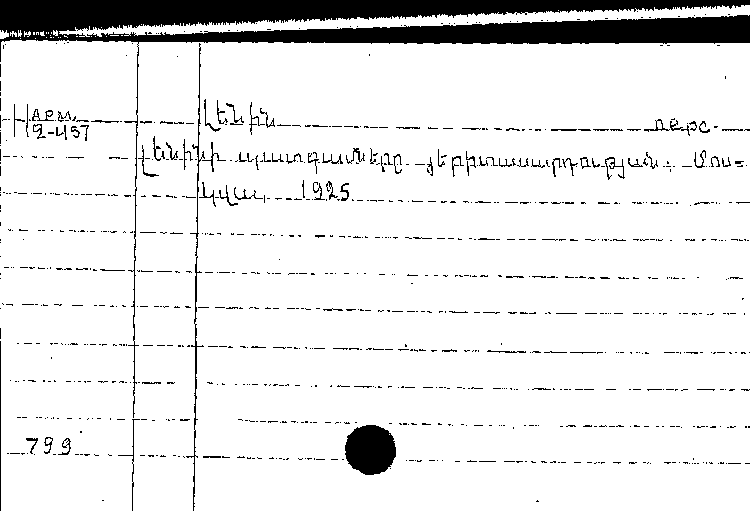 Арм. Լենին перс.
2-457
Լենինի պատգամները յերիտասարդության: Մոս-
կվա, 1925
799